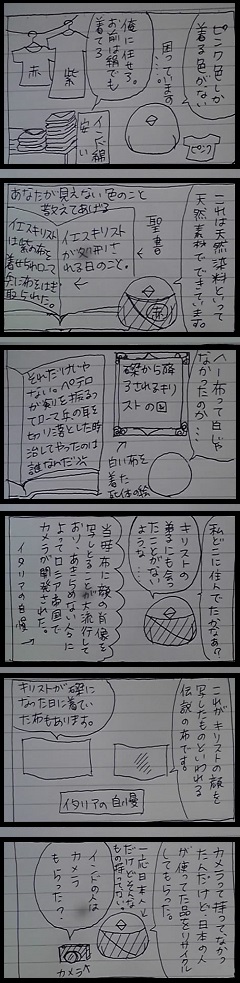 ピンク色しか
着る色がない
困ってます
…。
俺に任せろ。
お前は絹でも
着てろ
赤
紫
インド綿
安い
ピンク
これは天然染料といって
天然素材でできています。
聖書
←
赤
あなたが見えない色のこと
教えてあげる
イエスキリストが
処刑さ
れる日のこと。
イエスキリスト
は紫の布を
着せられローマ
兵に布をはぎ
取られた。
へー布って白じゃ
なかったのか…
磔から降
ろされるキリ
ストの図
白い布を
着た
死体の絵
それだけじゃ
ない。ペテロ
が剣を振るっ
てローマ兵の耳を
切り落とした時
治してやったのは
誰なんだ
私どこに住んでたかなぁ?
キリストの
弟子にも会っ
たことがない
ような…
当時布に顔の肖像を
写しとることが大流行して
おり、あきらめない人に
よってロシア帝国で
カメラが開発された。
イタリアの自慢
これがキリストの顔を
写したものといわれる
伝説の布です。
キリストが磔に
なった日に着てい
た布もあります。
イタリアの自慢
カメラって持ってなかっ
たんだけど、日本の人
が使ってた品をリサイクル
してもらった。
一応日本人
だけどそんな
もの持ってない。
インドの人は
カメラ
もらった?
カメラ